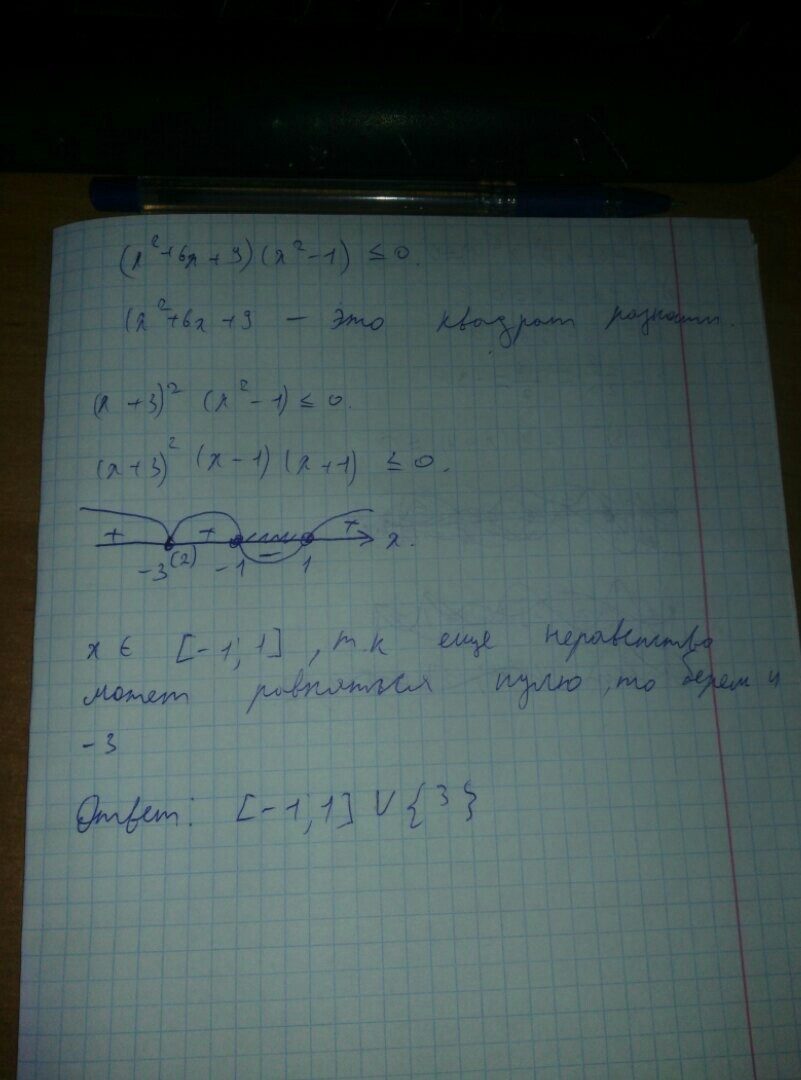 (x²+6x+9)(x²-1) ≤ 0.
(x²+6x+9 - это квадрат разности.
(x+3)² (x²-1) ≤ 0.
(x+3)² (x-1)(x+1) ≤ 0.
+ + - + x.
-3 (2) -1 1
x ∈ [-1; 1], т.к еще неравенство
может равняться нулю, то берем и
-3
Ответ: [-1; 1] ∪ {3}